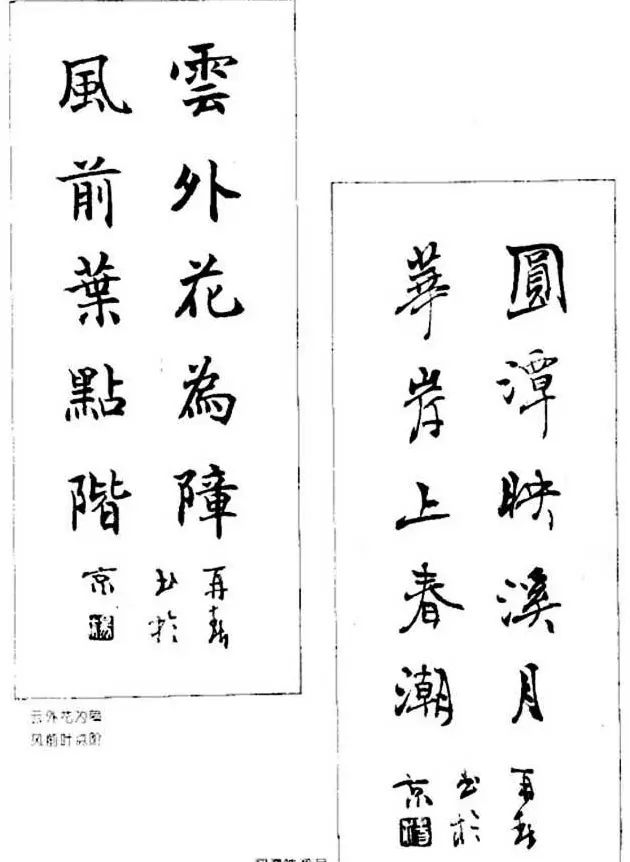 雲外花為障
風前葉點階
再春
書於
京
云外花为障
风前叶点阶
圓潭映溪月
華岸上春潮
再春
書於
京